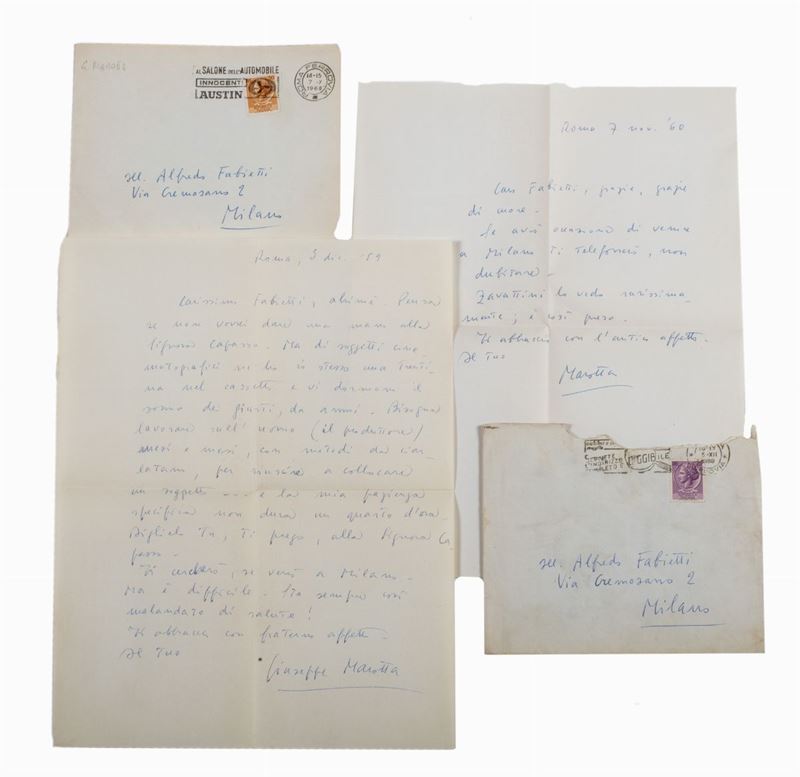 AL SALONE DELL'AUTOMOBILE
INNOCENTI
AUSTIN
ROMA FERROVIA
18-15
7-X
196
sec. Alfredo Fabietti
Via Cremosano 2
Milano
Roma 7 nov. '60
Caro Fabietti, grazie, grazie
di more.
Se avrò occasione di venire
a Milano ti telefonerò, non
dubitare.
Zavattini lo vedo rarissima-
mente; è così preso.
Ti abbraccio con l'antico affetto.
Il tuo
Marotta
Roma, 3 dic. '59
Carissimo Fabietti, ahimè. Pensa
se non vorrei dare una mano alla
signora Capasso. Ma di soggetti cine-
matografici ne ho io stesso una trenti-
na nel cassetto e vi dormono il
sonno dei giusti, da anni. Bisogna
lavorarsi sull'uomo (il produttore)
mesi e mesi, con metodi da ciar-
latani, per riuscire a collocare
un soggetto... e la mia pazienza
specifica non dura un quarto d'ora.
Diglielo Tu, ti prego, alla Signora Ca-
passo.
Ti cercherò, se verrò a Milano.
Ma è difficile. Sto sempre così
malandato di salute!
Ti abbraccia con fraterno affetto
Il Tuo
Giuseppe Marotta
INDIRIZZO
COMPLETO E
LEGGIBILE
-XII
sec. Alfredo Fabietti
Via Cremosano 2
Milano